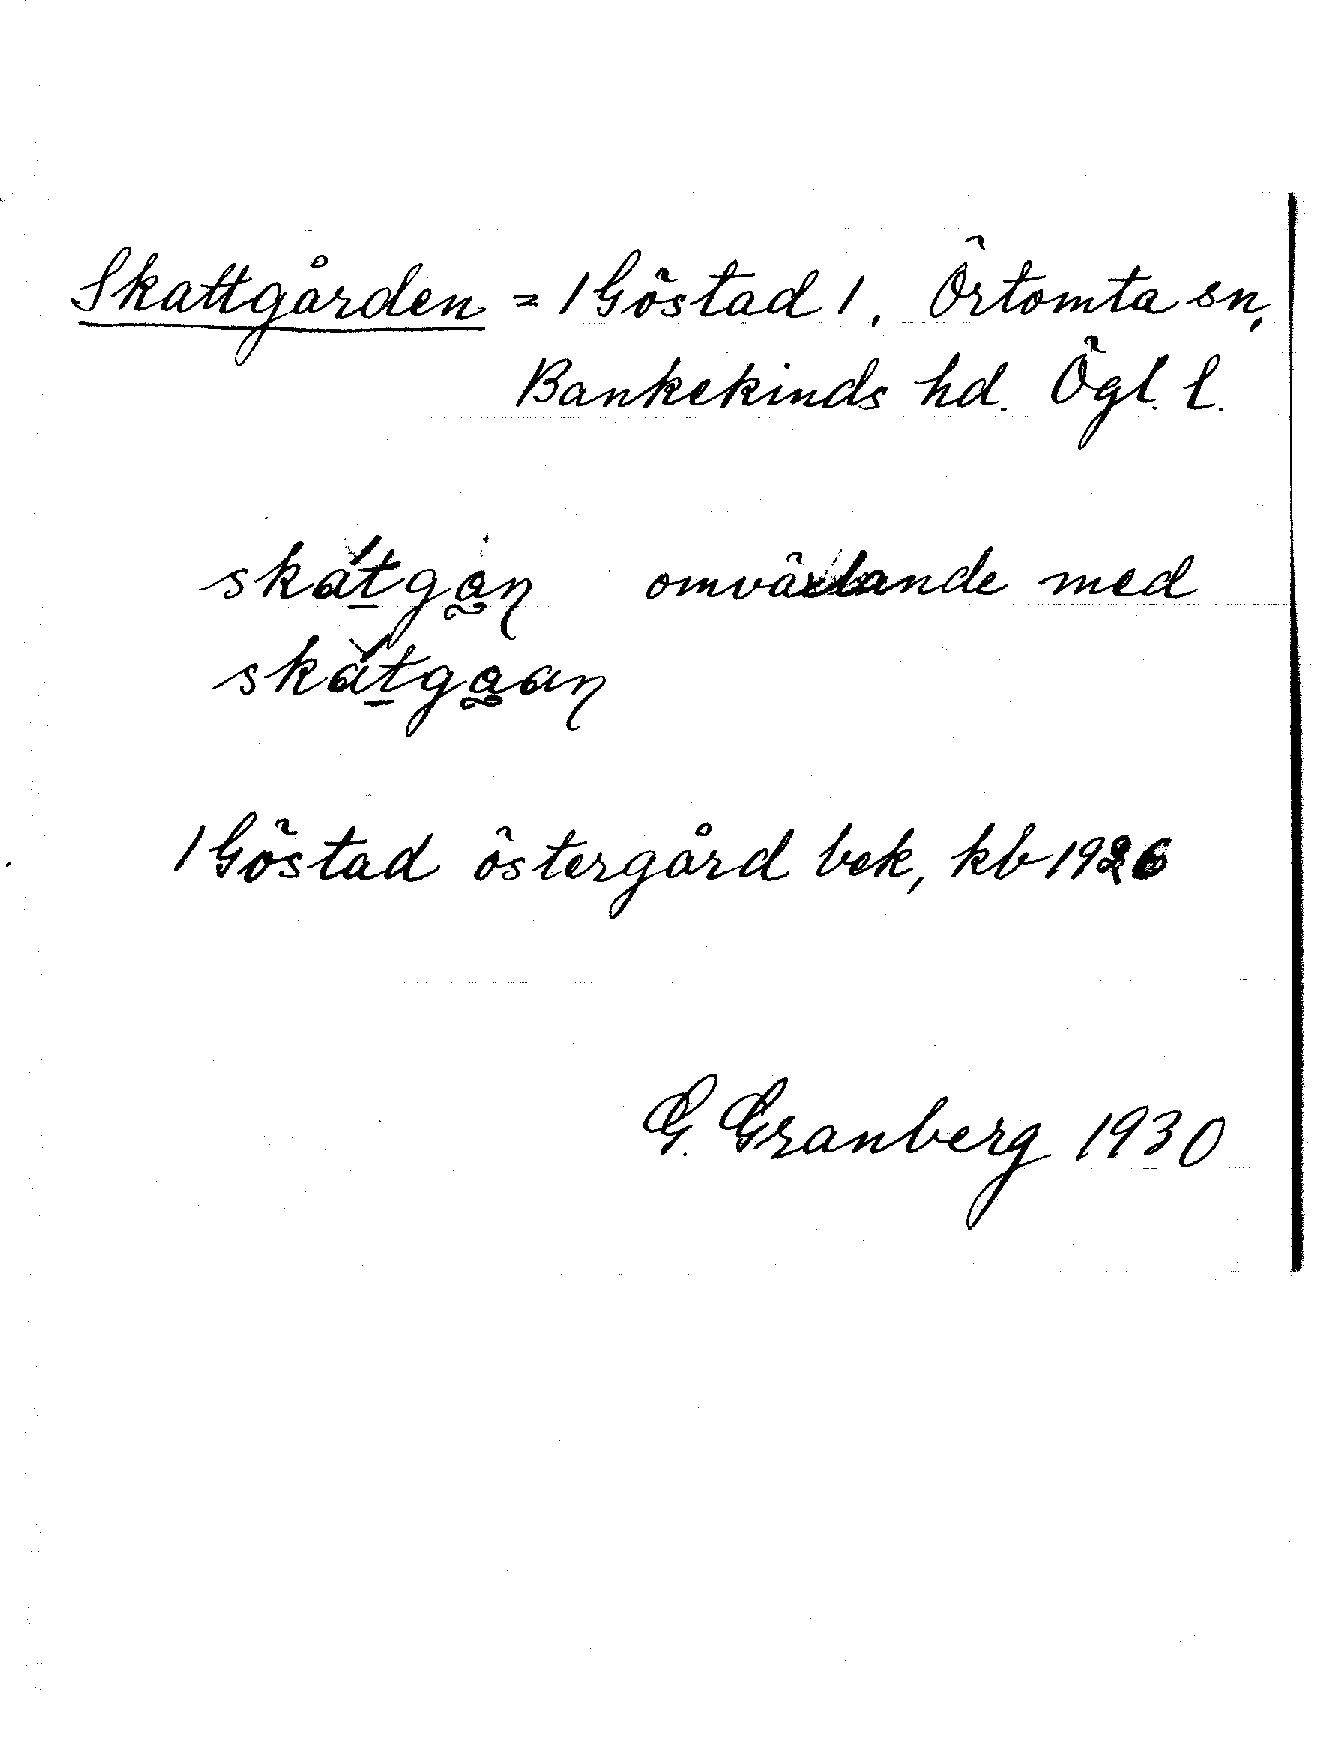 Skattgården = / Göstad 1. Örtomta sn,
Bankekinds hd. Ögl. l.
skat̲gan omväxlande med
skat̲gaan
1 Göstad östergård bek, kb 1926
G. Granberg 1930